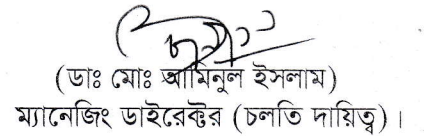 (ডাঃ মোঃ আমিনুল ইসলাম)
ম্যানেজিং ডাইরেক্টর (চলতি দায়িত্ব)।